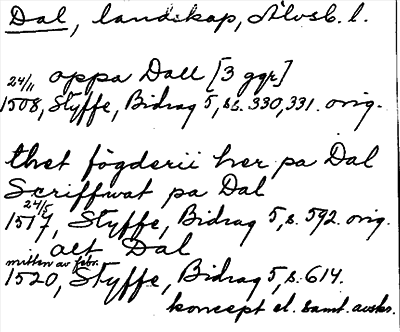 Dal, landskap, Älvsb. l.
oppa Dall [3 ggr]
24/11
1508, Styffe, Bidrag 5, s. 330, 331. orig.
thet fögderii her pa Dal
Scriffwat pa Dal
24/5
1517, Styffe, Bidrag 5, s. 592. orig.
alt Dal
mitten av febr.
1520, Styffe, Bidrag 5, s. 614.
koncept el. samt. avskr.